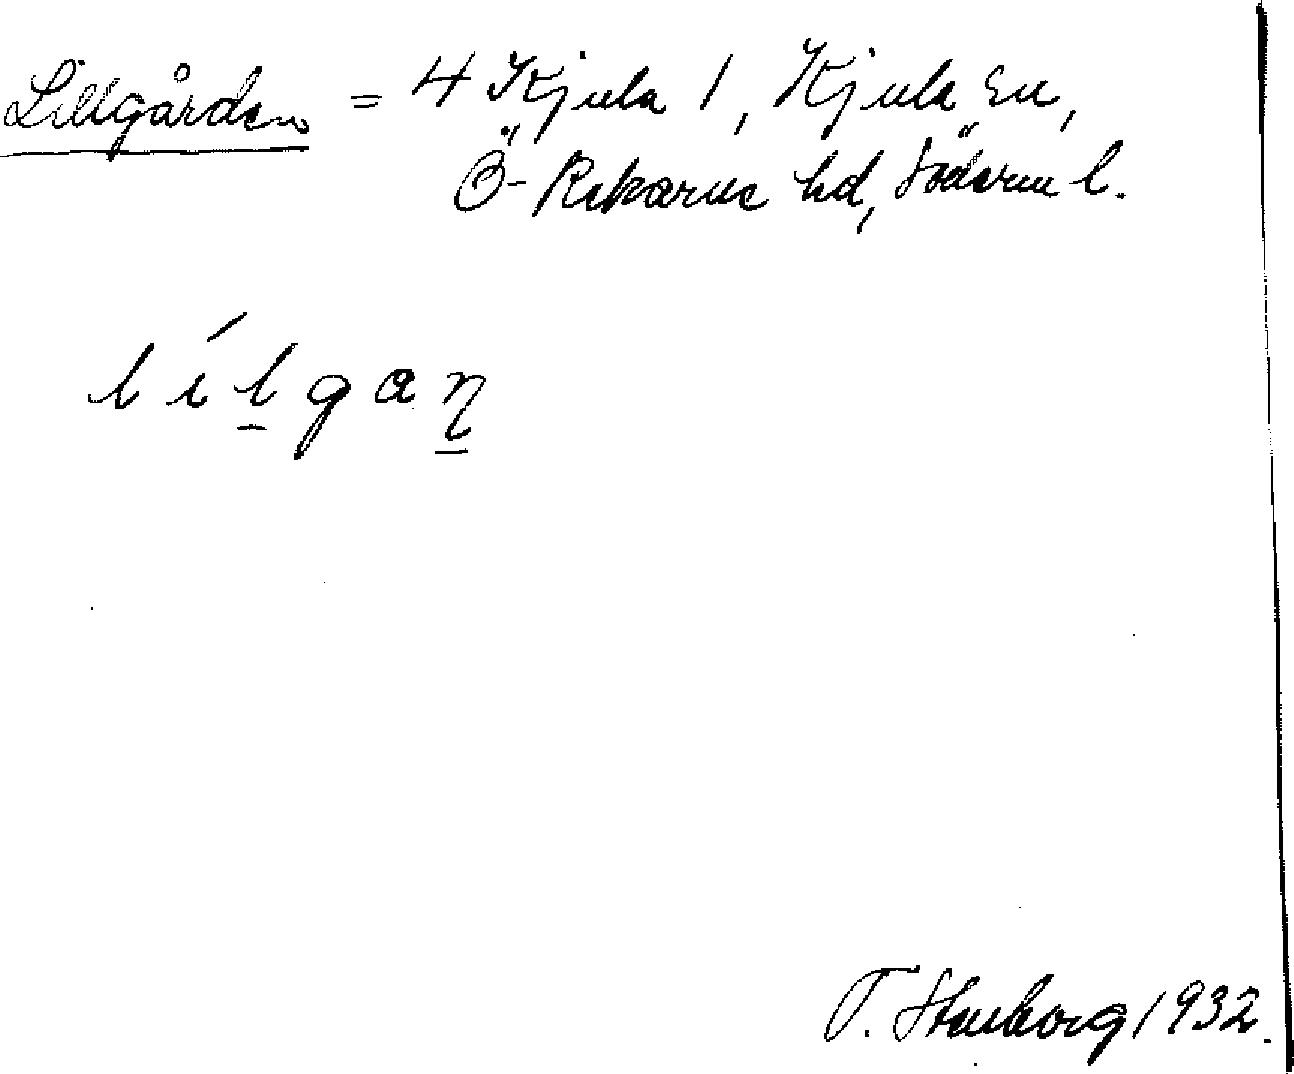 Lillgården = 4 Kjula 1, Kjula sn,
Ö-Rekarne hd, Söderm l.
lílgaṉ
T. Stenborg 1932.